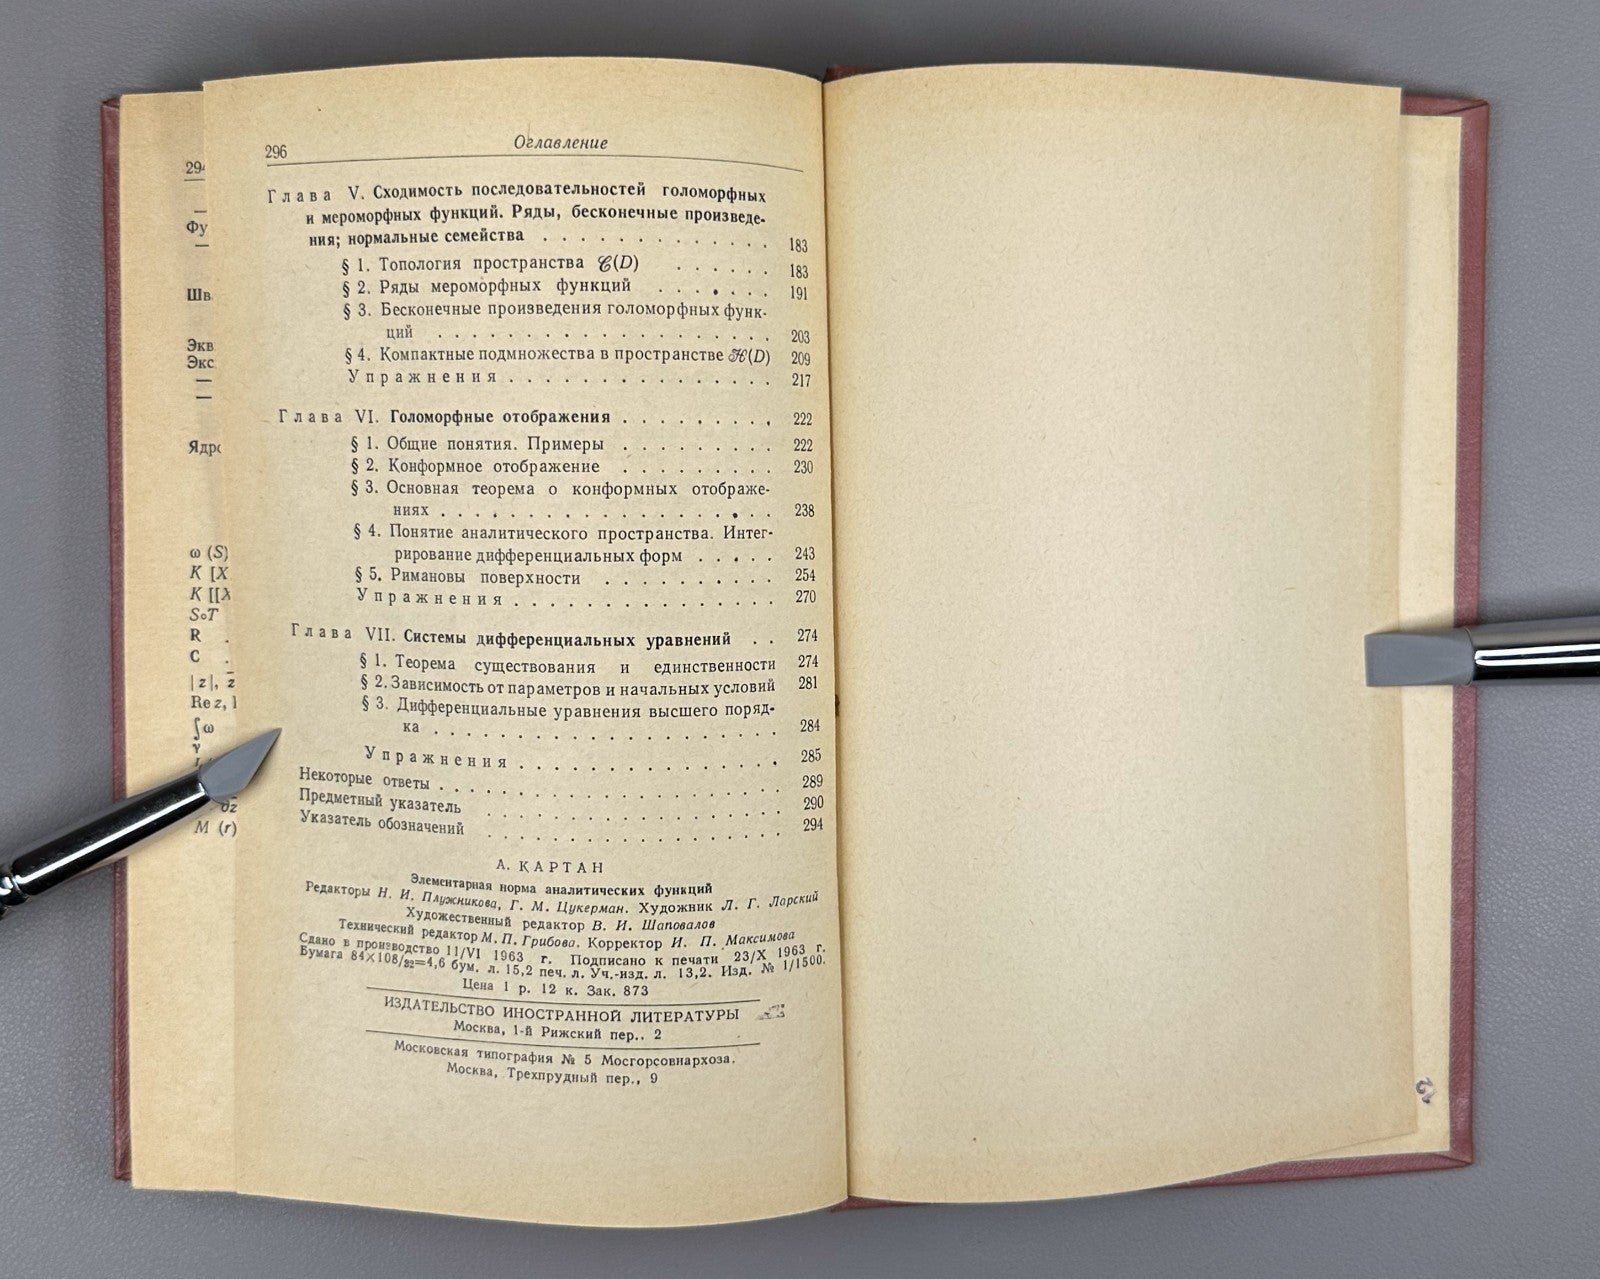 296
Оглавление
Глава V. Сходимость последовательностей голоморфных
и мероморфных функций. Ряды, бесконечные произведе-
ния; нормальные семейства . . . . . . . . . . . . . 183
§ 1. Топология пространства 𝒞(D) . . . . . . 183
§ 2. Ряды мероморфных функций . . . . . . 191
§ 3. Бесконечные произведения голоморфных функ-
ций . . . . . . . . . . . . . . . . 203
§ 4. Компактные подмножества в пространстве ℋ(D) 209
Упражнения . . . . . . . . . . . . . . . 217
Глава VI. Голоморфные отображения . . . . . . . . . 222
§ 1. Общие понятия. Примеры . . . . . . . . . 222
§ 2. Конформное отображение . . . . . . . . . 230
§ 3. Основная теорема о конформных отображе-
ниях . . . . . . . . . . . . . . . . . 238
§ 4. Понятие аналитического пространства. Интег-
рирование дифференциальных форм . . . . . 243
§ 5. Римановы поверхности . . . . . . . . . . 254
Упражнения . . . . . . . . . . . . . . . 270
Глава VII. Системы дифференциальных уравнений . . 274
§ 1. Теорема существования и единственности 274
§ 2. Зависимость от параметров и начальных условий 281
§ 3. Дифференциальные уравнения высшего поряд-
ка . . . . . . . . . . . . . . . . . . 284
Упражнения . . . . . . . . . . . . . . . 285
Некоторые ответы . . . . . . . . . . . . . . . . . . . 289
Предметный указатель . . . . . . . . . . . . . . . . . 290
Указатель обозначений . . . . . . . . . . . . . . . . . 294
А. КАРТАН
Элементарная норма аналитических функций
Редакторы Н. И. Плужникова, Г. М. Цукерман. Художник Л. Г. Ларский
Художественный редактор В. И. Шаповалов
Технический редактор М. П. Грибова. Корректор И. П. Максимова
Сдано в производство 11/VI 1963 г. Подписано к печати 23/X 1963 г.
Бумага 84×108/32=4,6 бум. л. 15,2 печ. л. Уч.-изд. л. 13,2. Изд. № 1/1500.
Цена 1 р. 12 к. Зак. 873
ИЗДАТЕЛЬСТВО ИНОСТРАННОЙ ЛИТЕРАТУРЫ
Москва, 1-й Рижский пер., 2
Московская типография № 5 Мосгорсовнархоза.
Москва, Трехпрудный пер., 9
29
Фу
Шв
Экв
Экс
Ядр
ω (S)
K [X
K [[X
S∘T
R .
C .
|z|, z̄
Re z, I
∫ω
γ
∂z
M (r)